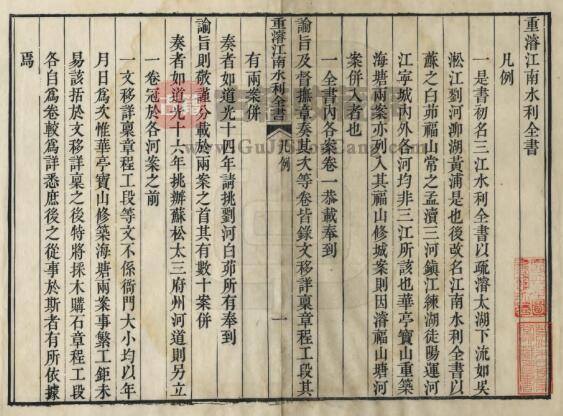 重濬江南水利全書
凡例
一是書初名三江水利全書以疏濬太湖下流如吳
淞江劉河泖湖黃浦是也後改名江南水利全書以
蘇之白茆福山常之孟瀆三河鎮江練湖徒陽運河
江寧城內外各河均非三江所該也華亭寶山重築
海塘兩案亦列入其福山修城案則因濬福山塘河
案併入者也
一全書內各案卷一恭載奉到
諭旨及督撫章奏其次等卷皆錄文移詳稟章程工段其
重濬江南水利全書 凡例 一
有兩案併
奏者如道光十四年請挑劉河白茆所有奉到
諭旨則敬謹分載於兩案之首其有數十案併
奏者如道光十六年挑辦蘇松太三府州河道則另立
一卷冠於各河案之前
一文移詳稟章程工段等文不係衙門大小均以年
月日為次惟華亭寶山修築海塘兩案事繁工鉅未
易該括於文移詳稟之後特將採木購石章程工段
各自為卷較為詳悉庶後之從事於斯者有所依據
焉
www.GuJiShouCang.com